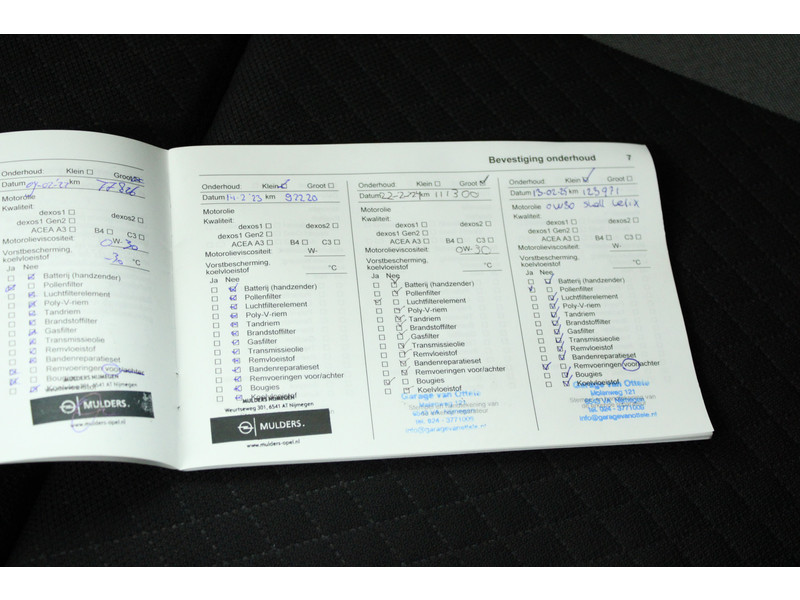 Bevestiging onderhoud 7
Onderhoud: Klein Groot
Datum km 77826
Motorolie
Kwaliteit:
dexos1 dexos2
dexos1 Gen2
ACEA A3 B4 C3
Motorolieviscositeit: 0W-30
Vorstbescherming,
koelvloeistof -30 °C
Ja Nee
Batterij (handzender)
Pollenfilter
Luchtfilterelement
Poly-V-riem
Tandriem
Brandstoffilter
Gasfilter
Transmissieolie
Remvloeistof
Bandenreparatieset
Remvoeringen voor/achter
Bougies
Koelvloeistof
MULDERS.
www.mulders-opel.nl
Onderhoud: Klein Groot
Datum 14-2-'23 km 92220
Motorolie
Kwaliteit:
dexos1 dexos2
dexos1 Gen2
ACEA A3 B4 C3
Motorolieviscositeit: W-
Vorstbescherming,
koelvloeistof °C
Ja Nee
Batterij (handzender)
Pollenfilter
Luchtfilterelement
Poly-V-riem
Tandriem
Brandstoffilter
Gasfilter
Transmissieolie
Remvloeistof
Bandenreparatieset
Remvoeringen voor/achter
Bougies
MULDERS NIJMEGEN
Weurtseweg 301, 6541 AT Nijmegen
MULDERS.
www.mulders-opel.nl
Onderhoud: Klein Groot
Datum 22-2-24 km 111300
Motorolie
Kwaliteit:
dexos1 dexos2
dexos1 Gen2
ACEA A3 B4 C3
Motorolieviscositeit: 0W-30
Vorstbescherming,
koelvloeistof °C
Ja Nee
Batterij (handzender)
Pollenfilter
Luchtfilterelement
Poly-V-riem
Tandriem
Brandstoffilter
Gasfilter
Transmissieolie
Remvloeistof
Bandenreparatieset
Remvoeringen voor/achter
Bougies
Koelvloeistof
Garage van Ottele
Molenweg 121
tel. 024 - 3771005
Onderhoud: Klein Groot
Datum 13-02-25 km 123971
Motorolie 0W30 Shell Helix
Kwaliteit:
dexos1 dexos2
dexos1 Gen2
ACEA A3 B4 C3
Motorolieviscositeit: W-
Vorstbescherming,
koelvloeistof °C
Ja Nee
Batterij (handzender)
Pollenfilter
Luchtfilterelement
Poly-V-riem
Tandriem
Brandstoffilter
Gasfilter
Transmissieolie
Remvloeistof
Bandenreparatieset
Remvoeringen voor/achter
Bougies
Koelvloeistof
Garage van Ottele
Molenweg 121
tel. 024 - 3771005